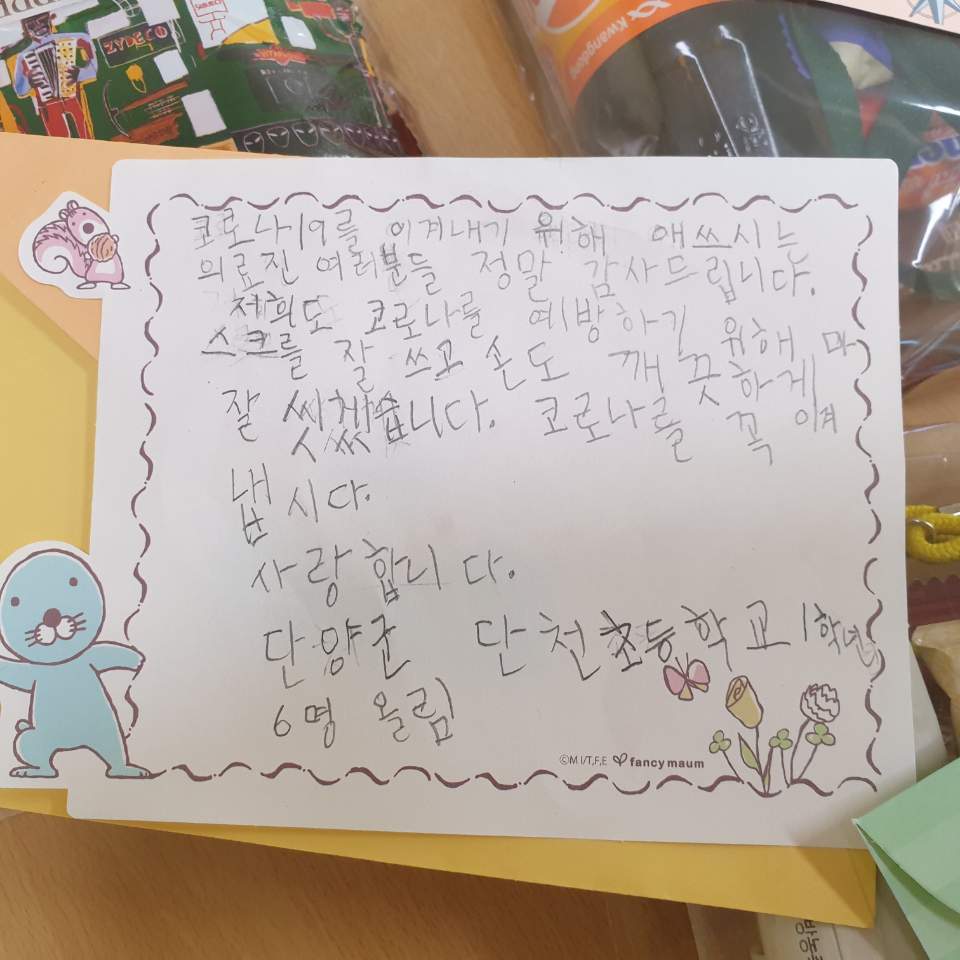 ZYDECO
Kwangdong
코로나19를 이겨내기 위해 애쓰시는
의료진 여러분들 정말 감사드립니다.
저희도 코로나를 예방하기 위해 마
스크를 잘 쓰고 손도 깨끗하게
잘 씻겠습니다. 코로나를 꼭 이겨
냅시다.
사랑합니다.
단양군 단천초등학교 1학년
6명 올림
©M I/T,F,E fancy maum